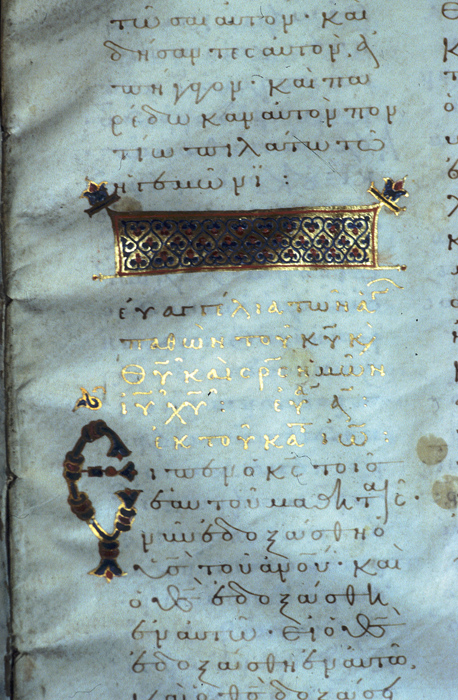 τῶσαι αὐτόν· καὶ
δήσαντες αὐτὸν, ἀ
πήγαγον· καὶ πα
ρέδωκαν αὐτὸν πον
τίω πιλάτω τῶ
ἡγεμῶνι:
εὐαγγέλια τῶν ἁγ
παθῶν τοῦ κ̅υ̅ κ̀
θ̅υ̅ καὶ σ̅ρ̅ς̅ ἡμῶν
ι̅υ̅ χ̅υ̅: εὐα α̅
ἐκ τοῦ κατ ιω:
Εἶπεν ὁ κ̅ς̅ τοῖς
ἑαυτοῦ μαθηταῖς·
νῦν ἐδοξάσθη ὁ
υ̅ς̅ τοῦ α̅ν̅ο̅υ̅· καὶ
ὁ θ̅ς̅ ἐδοξάσθη
ἐν αὐτῶ· εἰ ὁ θ̅ς̅
ἐδοξάσθη ἐν αὐτῶ,
καὶ ὁ θ̅ς̅ δοξάσει